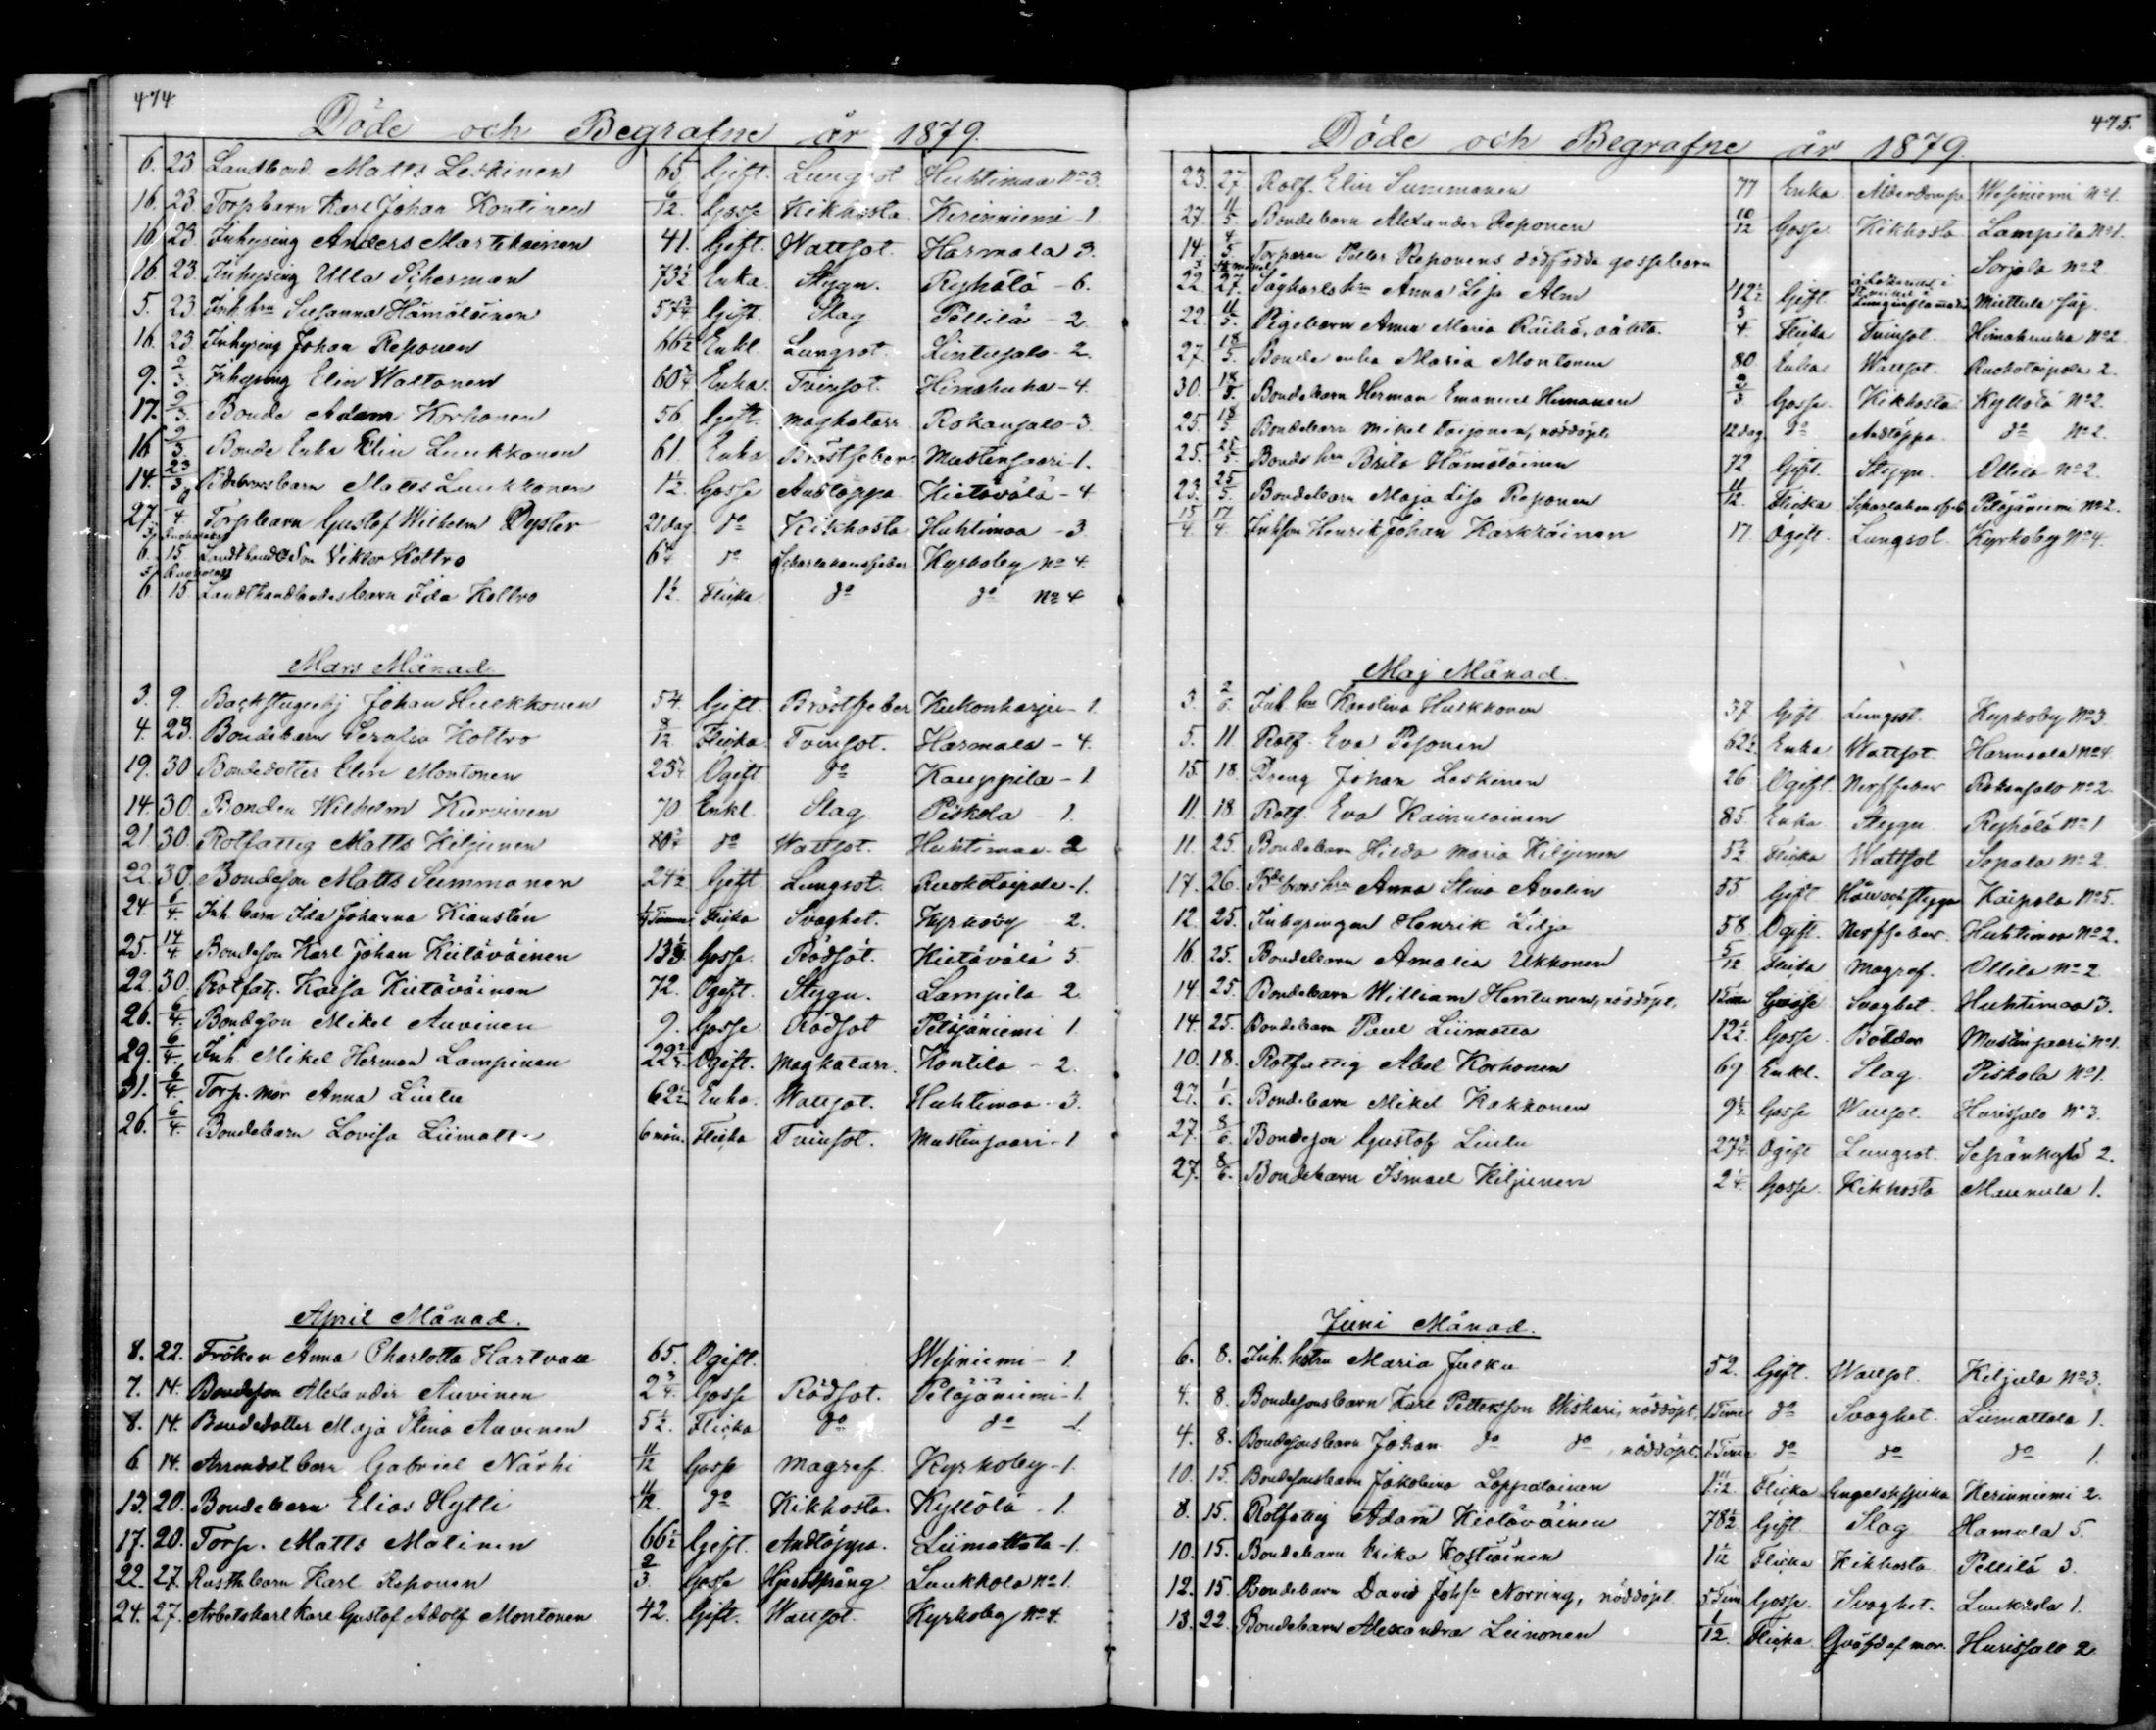 474
Döde och Begrafne år 1879.
6. 23 Landbond. Matts Leskinen 65 Gift. Lungsot Huhtimaa No 3.
16. 23. Torpbarn Karl Johan Kontinen 6/12 Gosse Kikhosta Kirinniemi - 1.
16 23. Inhysing Anders Martikainen 41. Gift. Wattsot. Harmala 3.
16 23. Inhysing Ulla 73 1/2 Enka Stygn. Ryhälä - 6.
5. 23 Inh. hru Susanna Hämäläinen 57 3/4 Gift. Slag Pellilä - 2.
16. 23 Inhysing Johan Reponen 66 1/2 Enkl. Lungsot. Lintusalo - 2.
9. 2/3. Inhysing Elin Waltonen 60 3/4 Enka Tvinsot. Himahuha - 4.
17. 9/3. Bonde Adam Korhonen 56 Gift. magkatarr Rokansalo - 3.
16 9/3. Bonde Enka Elin Luukkonen 61. Enka Bröstfeber Mustinsaari - 1.
14. 23/3 Matts Luukkonen 1 1/2. Gosse Andtäppa Kietävälä - 4
27. 6/4 Torpbarn Gustaf Wilhelm Dyster 21 dag do Kikhosta Huhtimaa - 3
6. 15 Viktor Koltro 6 1/4 do Scharlakansfeber Kyrkoby No 4.
6 15. Landthandlandesbarn Ida Koltro 1 1/2. Flicka do do No 4
Mars Månad.
3. 9. Backstugusitj Johan Hulkkonen 54. Gift. Bröstfeber Kukonharju - 1.
4. 23. Bondebarn Serafia Koltro 8/12 Flicka Tvinsot. Harmala - 4.
19. 30 Bondedotter Elin Montonen 23 3/4. Ogift do Kauppila - 1
14. 30. Bonden Wilhelm Kurvinen 70 Enkl. Slag Piskola 1.
21. 30. Rotfattig Matts Kiljunen 80 3/4 do Wattsot. Huhtimaa - 2
22. 30. Bondeson Matts Summanen 24 1/2 Gift Lungsot. Ruokotaipale - 1.
24. 6/4. Inh. barn Ida Johanna Kiausten Flicka Svaghet. Kyrkoby - 2.
25. 14/4 Bondeson Karl Johan Kietäväinen 13 Gosse. Rödsot. Kietävälä 5.
22. 30. Rotfatt. Kaisa Kietäväinen 72. Ogift. Stygn. Lampila 2.
26. 6/4. Bondeson Mikel Auvinen 9. Gosse Rödsot Petäjäniemi 1
29. 6/4. Inh. Mikel Herman Lampinen 22 Ogift. Magkatarr. Kontila - 2.
31. 6/4. Torp. mor Anna Liutu 62 1/2 Enka. Wattsot. Huhtimaa - 3.
26. 6/4. Bondebarn Lovisa Liimatta 6 mån. Flicka Tvinsot. Mustinsaari - 1
April Månad.
8. 22. Fröken Anna Charlotta Hartvall 65. Ogift. Wesiniemi - 1.
7. 14. Bondeson Alexander Auvinen 2 3/4. Gosse Rödsot. Petäjäniemi - 1.
8. 14. Bondedotter Maja Stina Auvinen 5 1/2. Flicka do do 1.
6 14. Arrendat. barn Gabriel Närhi 11/12 Gosse Magref. Kyrkoby - 1.
13. 20. Bondebarn Elias Hytti 11/12. do Kikhosta. Kyllölä - 1.
17. 20. Torp. Matts Malinen 66 1/2 Gift. Andtäppa. Liimattala - 1.
22. 27. Rusthbarn Karl Reponen 2/3. Gosse Luukkola No 1.
24. 27. Arbetskarl Karl Gustaf Adolf Montonen 42. Gift. Wattsot. Kyrkoby No 4.
475.
Döde och Begrafne år 1879.
23. 27. Rotf. Elin Summanen 77 Enka Ålderdoms Wesiniemi No 1.
27. 11/5 Bondebarn Alexander Reponen 10/12 Gosse Kikhosta Lampila No 1.
14. 4/5 Torparen Petter Reponens dödfödda gossebarn Sorjola No 2
22 27. Sågkarls hru Anna Lisa Alm 42 1/2 Gift. Miettula såg.
22. 11/5. Pigebarn Anna Maria Räihä, oäkta. 3/4 Flicka Tvinsot. Himahuha No 2
27. 18/5. Bonde enka Maria Montonen 80 Enka Wattsot. Ruokotaipale 2.
30. 18/5. Bondebarn Herman Emanuel Humonen 2/3 Gosse. Kikhosta Kyllölä No 2.
25. 18/5 Bondebarn Mikel Taiponen, nöddöpt. 12 dag do Andtäppa. do No 2.
25. 25/5. Bonds hru Brita Hämäläinen 72. Gift. Stygn. Ollila No 2.
23. 25/5. Bondebarn Maja Lisa Reponen 11/12. Flicka Scharlakansfeb. Petäjäniemi No 2.
15/4 17/4 Inhson Henrik Johan Karkkäinen 17 Ogift. Lungsot. Kyrkoby No 4.
Maj Månad.
3. 2/6. Inh. hu Karolina Hulkkonen 37 Gift Lungsot. Kyrkoby No 3.
5. 11 Rotf. Eva Pesonen 62 1/2. Enka Wattsot. Harmaala No 4.
15. 18. Dreng Johan Leskinen 26 Ogift. Nerffeber Rokansalo No 2.
11. 18. Rotf. Eva Kainulainen 85. Enka Stygn Ryhälä No 1
11. 25. Bondebarn Hilda Maria Kiljunen 5 1/2 Flicka Wattsot Sopala No 2.
17. 26. hru Anna Stina Avelin 55 Gift Håll och stygn Kaipola No 5.
12. 25. Inhysingen Henrik Lilja 58 Ogift. Nerffeber Huhtimaa No 2.
16. 25. Bondebarn Amalia Ukkonen 5/12 Flicka Magref. Ollila No 2
14 25. Bondebarn William Hentunen, nöddöpt. 1 Timm Gosse Svaghet. Huhtimaa 3.
14. 25. Bondebarn Paul Liimatta 12 1/2. Gosse Bölder Mustinsaari No 1.
10. 18. Rotfattig Abel Korhonen 69 Enkl. Slag Piskola No 1.
27. 1/6. Bondebarn Mikel Kakkonen 9 1/2 Gosse Wattsot. Hurissalo No 3.
27. 8/6. Bondeson Gustaf Liutu 27 3/4. Ogift Lungsot. Sepänkylä 2.
27. 8/6. Bondebarn Ismael Kiljunen 2 1/4. Gosse. Kikhosta Maunula 1.
Juni Månad.
6. 8. Inh. hstru Maria Julku 52. Gift. Wattsot. Kiljula No 3.
4. 8. Bondesonsbarn Karl Pettersson Hiskari, nöddöpt. 1 Timme do Svaghet. Liimattala 1.
4. 8. Bondesonsbarn Johan do do, nöddöpt. 1 Timme do do do 1.
10. 15. Bondesonsbarn Jakobina Loppalainen 1 11/12 Flicka Engelsksjuka Kerinniemi 2.
8. 15. Rotfattig Adam Kietäväinen 78 1/2 Gift. Slag Hamula 5.
10. 15. Bondebarn Erika Kostiainen 1 1/12 Flicka Kikhosta Pellilä 3.
12. 15. Bondebarn David Johsn Norring, nöddöpt 5 Tim Gosse. Svaghet. Luukkola 1.
13. 22. Bondebarn Alexandra Leinonen 1/12. Flicka Qväfd af mor. Hurissalo 2